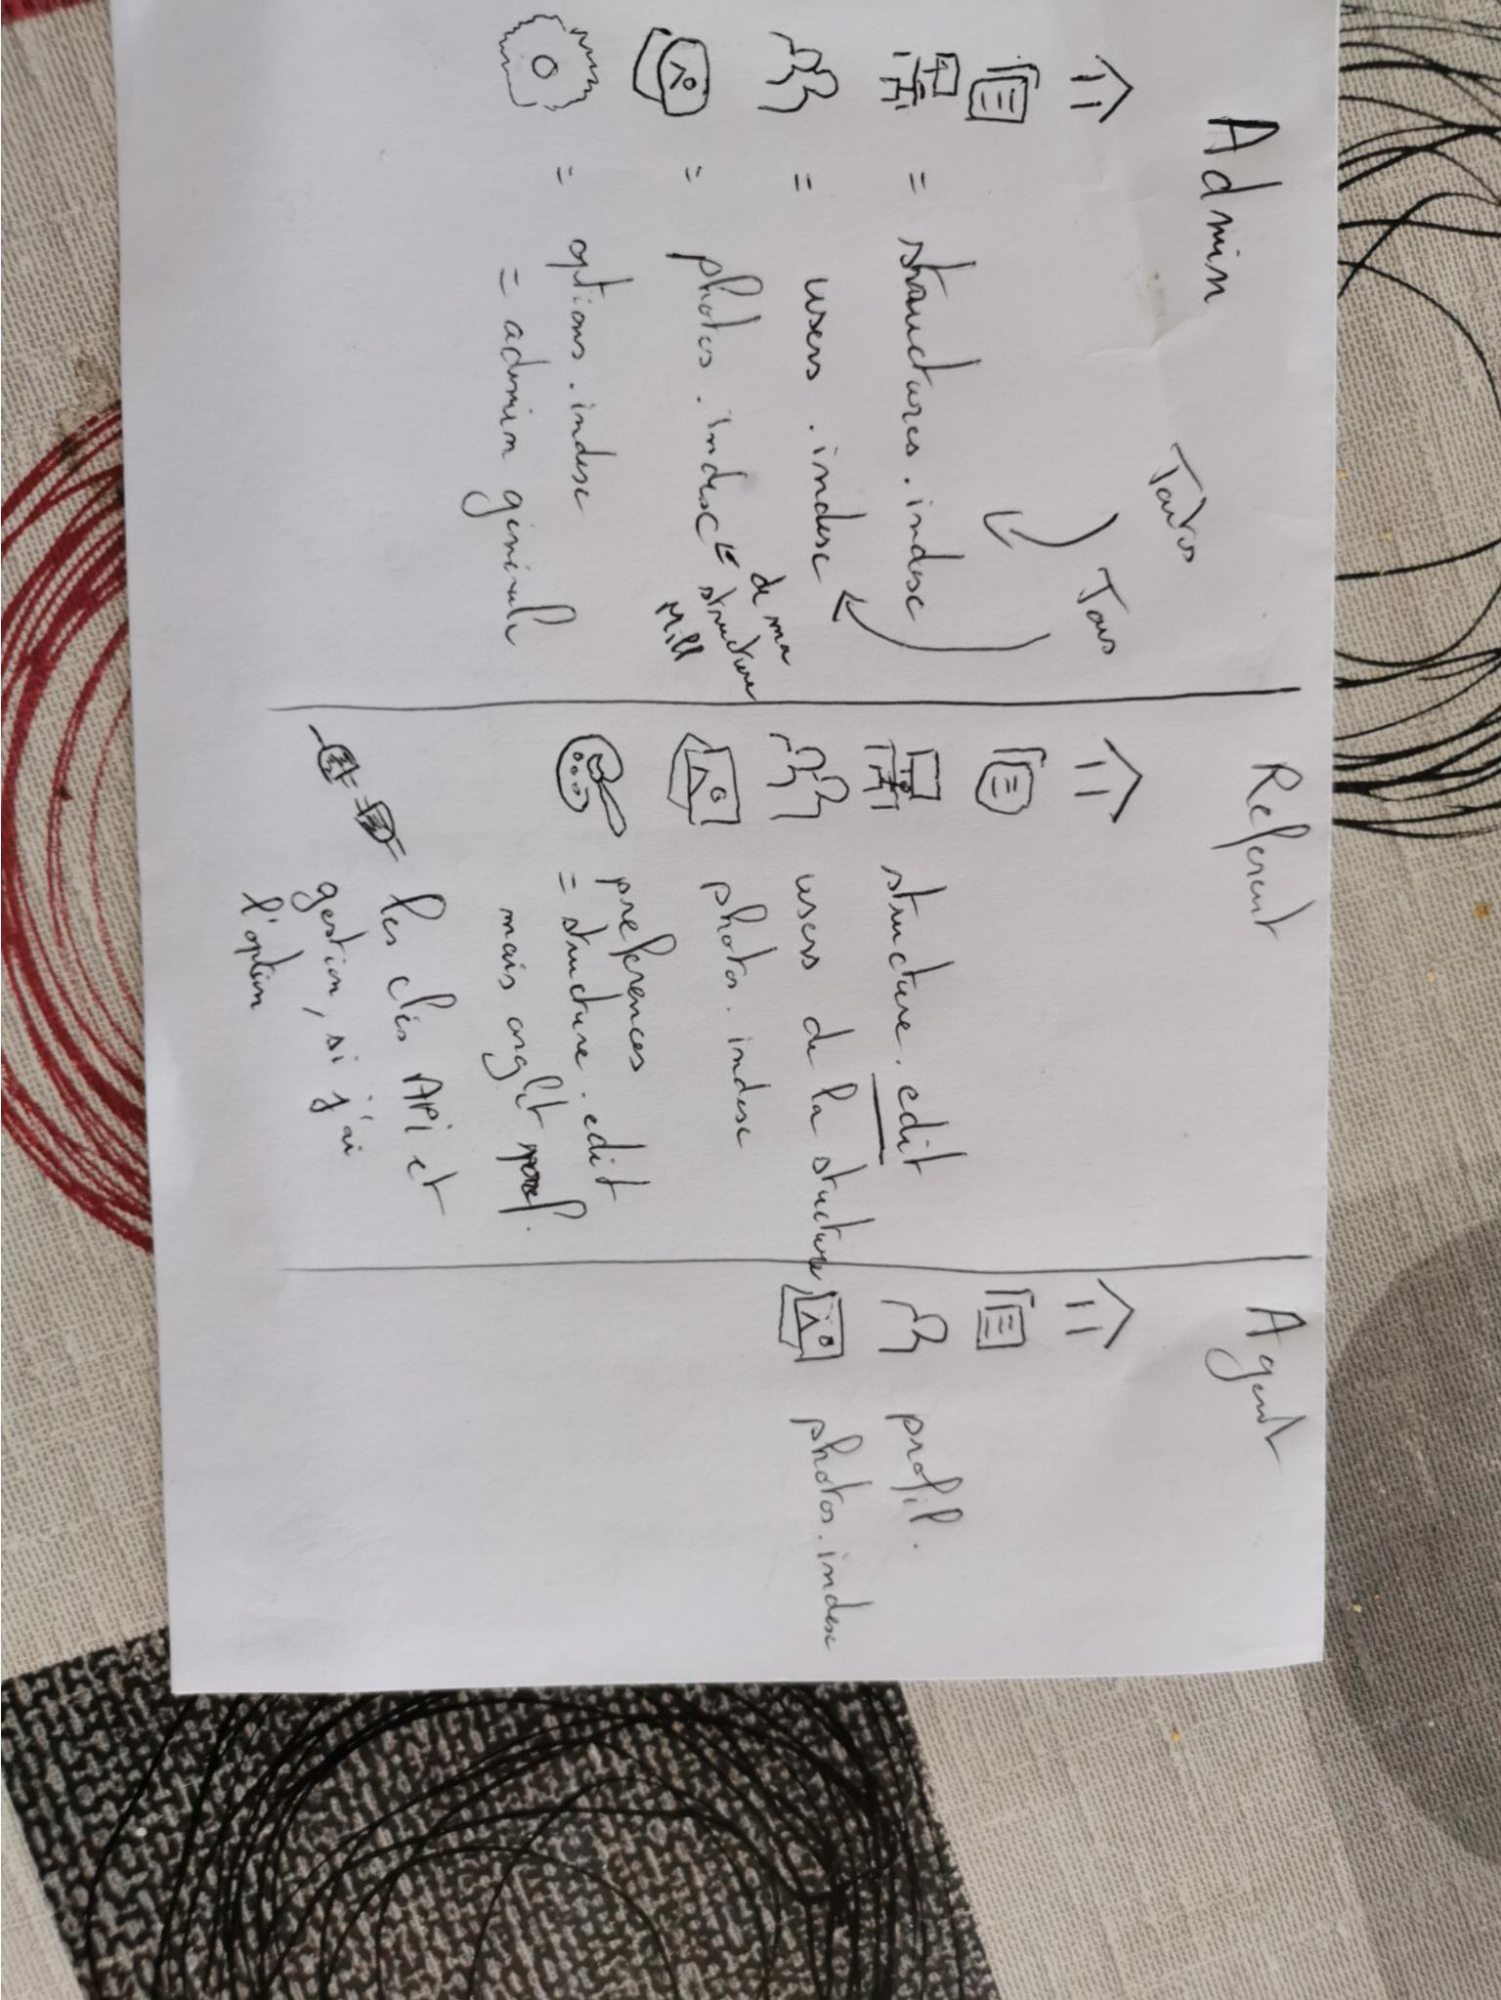 Admin
Toutes
Tous
= structures.index
= users.index
= photos.index
de ma
structure
Mill
= options.index
= admin générale
Referent
structure.edit
users de la structure
photos.index
preferences
= structure.edit
mais onglet pref.
les clés API et
gestion, si j'ai
l'option
Agent
profil.
photos.index